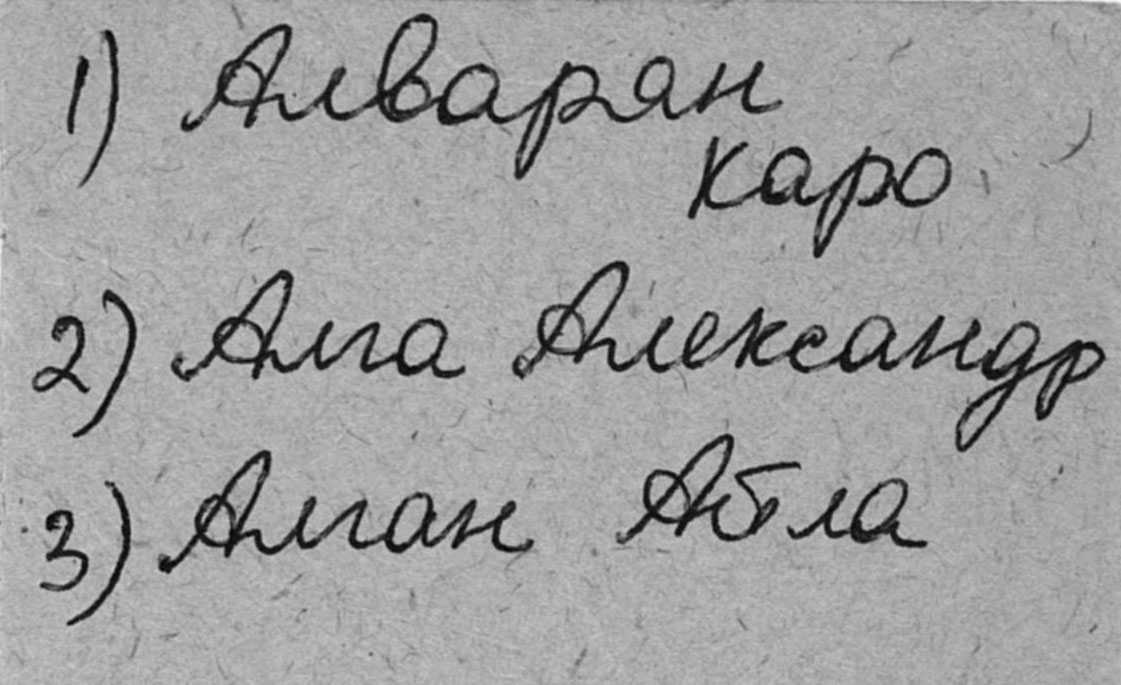 1) Алварян
Каро
2) Алга Александр
3) Алган Абла